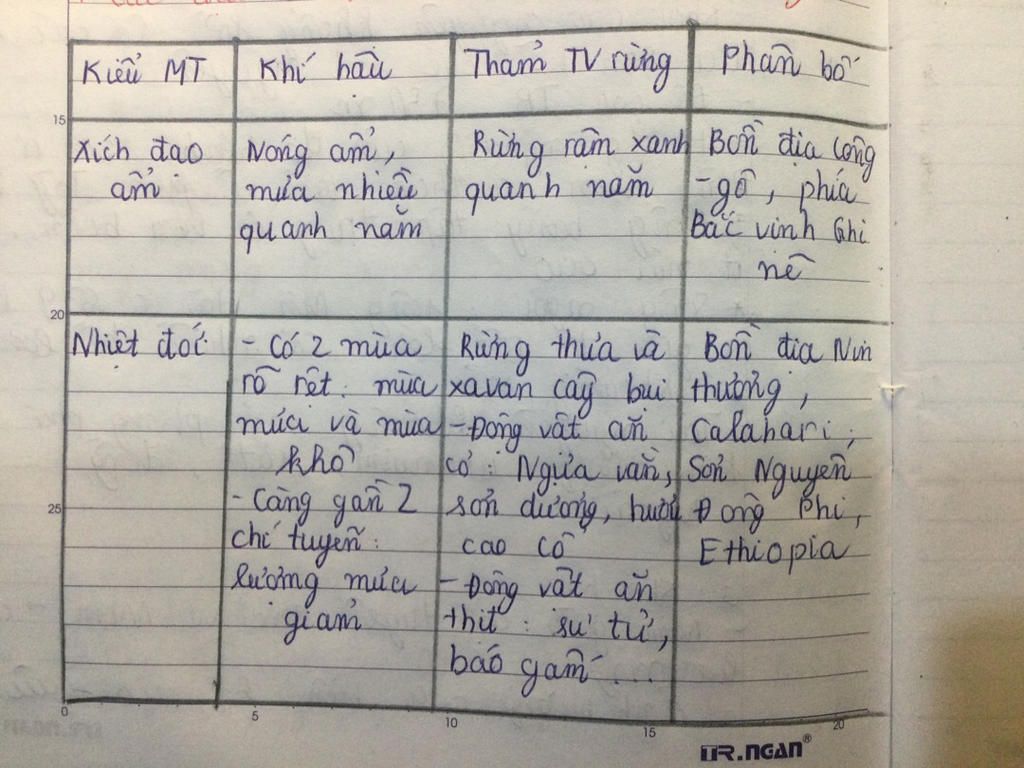 Kiểu MT
Khí hậu
Thảm TV rừng
Phân bố
15
Xích đạo
ẩm
Nóng ẩm,
mưa nhiều
quanh năm
Rừng rậm xanh
quanh năm
Bồn địa Công
-gô, phía
Bắc vịnh Ghi
nê
20
Nhiệt đới
- Có 2 mùa
rõ rệt: mùa
mưa và mùa
khô
- Càng gần 2
chí tuyến:
lượng mưa
giảm
Rừng thưa và
xavan cây bụi
- Động vật ăn
cỏ: Ngựa vằn,
sơn dương, hươu
cao cổ
- Động vật ăn
thịt: sư tử,
báo gấm...
Bồn địa Nin
thượng,
Calahari;
Sơn Nguyên
Đông Phi,
Ethiopia
25
0
5
10
15
20
TR.NGAN®